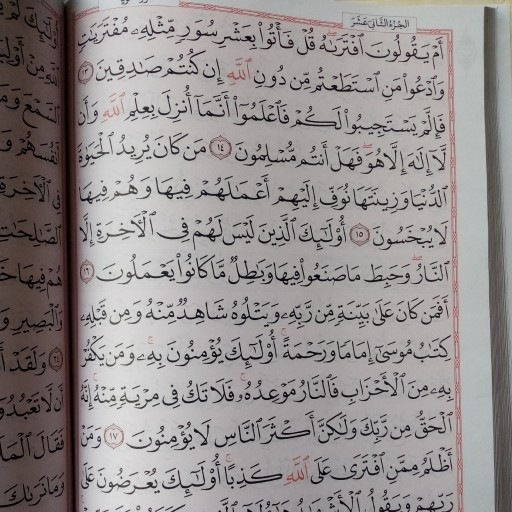 الجزء الثاني عشر
أَمْ يَقُولُونَ ٱفْتَرَىٰهُ ۖ قُلْ فَأْتُوا۟ بِعَشْرِ سُوَرٍ مِّثْلِهِۦ مُفْتَرَيَٰتٍ
وَٱدْعُوا۟ مَنِ ٱسْتَطَعْتُم مِّن دُونِ ٱللَّهِ إِن كُنتُمْ صَٰدِقِينَ ١٣
فَإِلَّمْ يَسْتَجِيبُوا۟ لَكُمْ فَٱعْلَمُوٓا۟ أَنَّمَآ أُنزِلَ بِعِلْمِ ٱللَّهِ وَأَن
لَّآ إِلَٰهَ إِلَّا هُوَ ۖ فَهَلْ أَنتُم مُّسْلِمُونَ ١٤ مَن كَانَ يُرِيدُ ٱلْحَيَوٰةَ
ٱلدُّنْيَا وَزِينَتَهَا نُوَفِّ إِلَيْهِمْ أَعْمَٰلَهُمْ فِيهَا وَهُمْ فِيهَا
لَا يُبْخَسُونَ ١٥ أُو۟لَٰٓئِكَ ٱلَّذِينَ لَيْسَ لَهُمْ فِى ٱلْءَاخِرَةِ إِلَّا
ٱلنَّارُ ۖ وَحَبِطَ مَا صَنَعُوا۟ فِيهَا وَبَٰطِلٌ مَّا كَانُوا۟ يَعْمَلُونَ ١٦
أَفَمَن كَانَ عَلَىٰ بَيِّنَةٍ مِّن رَّبِّهِۦ وَيَتْلُوهُ شَاهِدٌ مِّنْهُ وَمِن قَبْلِهِۦ
كِتَٰبُ مُوسَىٰٓ إِمَامًا وَرَحْمَةً ۚ أُو۟لَٰٓئِكَ يُؤْمِنُونَ بِهِۦ ۚ وَمَن يَكْفُرْ
بِهِۦ مِنَ ٱلْأَحْزَابِ فَٱلنَّارُ مَوْعِدُهُۥ ۚ فَلَا تَكُ فِى مِرْيَةٍ مِّنْهُ ۚ إِنَّهُ
ٱلْحَقُّ مِن رَّبِّكَ وَلَٰكِنَّ أَكْثَرَ ٱلنَّاسِ لَا يُؤْمِنُونَ ١٧ وَمَنْ
أَظْلَمُ مِمَّنِ ٱفْتَرَىٰ عَلَى ٱللَّهِ كَذِبًا ۚ أُو۟لَٰٓئِكَ يُعْرَضُونَ عَلَىٰ
رَبِّهِمْ وَيَقُولُ ٱلْأَشْهَٰدُ هَٰٓؤُلَآءِ ٱلَّذِينَ
مِنْ
ٱلسَّمْعَ
أَنفُسَهُمْ
فِى
ٱلصَّٰلِحَٰتِ
هُمْ فِيهَا
وَٱلْبَصِيرِ
٢٤ وَلَقَدْ
أَن لَّا
فَقَالَ
وَمَا نَرَىٰكَ